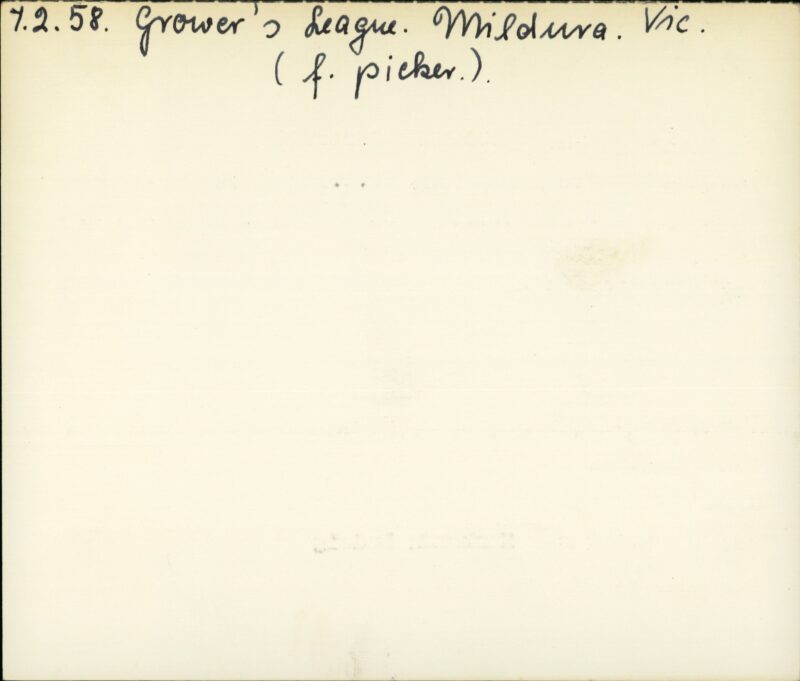 7.2.58. Grower's League. Mildura. Vic.
(f. picker.).